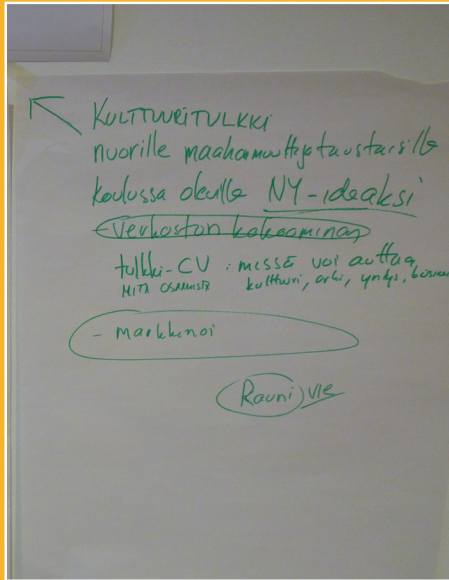 KULTTUURITULKKI
nuorille maahanmuuttajataustaisille
koulussa oleville NY-ideaksi
- verkoston kokoaminen
tulkki-CV : missä voi auttaa,
MITÄ OSAAMISTA kulttuuri, arki, yritys,
- markkinoi
Rauni vie